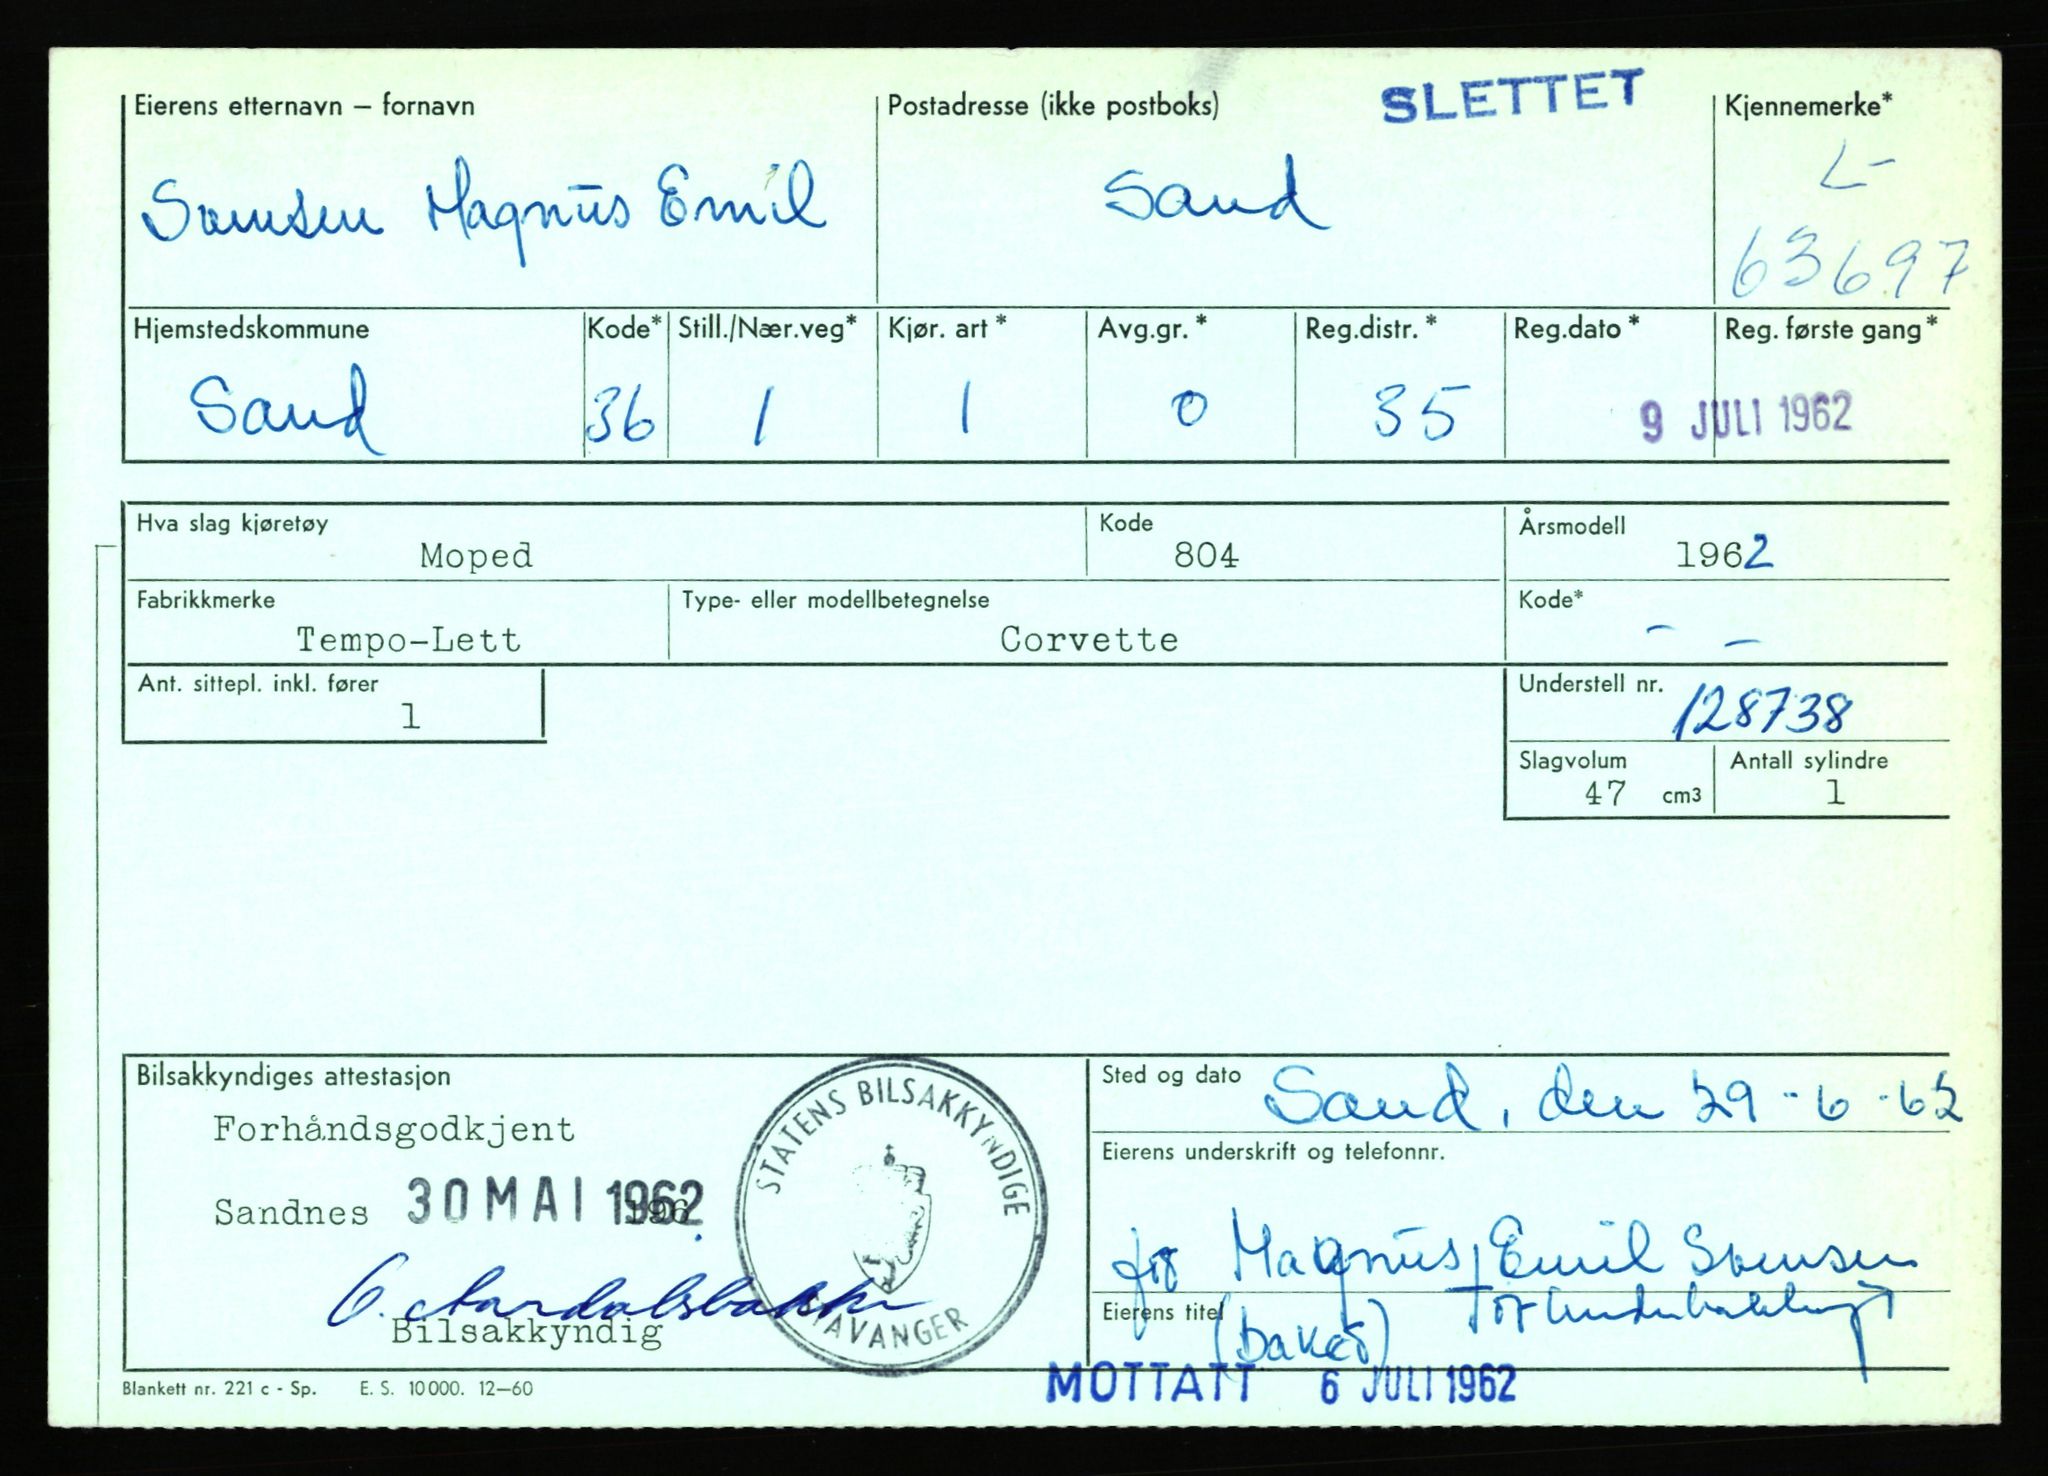 SLETTET
Eierens etternavn – fornavn Postadresse (ikke postboks) Kjennemerke*
Magnus Emil Sand L-
63697
Hjemstedskommune Kode* Still./Nær.veg* Kjør. art* Avg.gr.* Reg.distr.* Reg.dato* Reg. første gang*
Sand 36 1 1 0 35 9 JULI 1962
Hva slag kjøretøy Kode Årsmodell
Moped 804 1962
Fabrikkmerke Type- eller modellbetegnelse Kode*
Tempo-Lett Corvette - -
Ant. sittepl. inkl. fører Understell nr.
1 128738
Slagvolum Antall sylindre
47 cm3 1
Bilsakkyndiges attestasjon Sted og dato
Sand, den 29-6-62
Forhåndsgodkjent
Eierens underskrift og telefonnr.
Sandnes 30 MAI 1962
STATENS BILSAKKYNDIGE
STAVANGER
for Magnus Emil
Eierens titel
Bilsakkyndig
MOTTATT 6 JULI 1962
Blankett nr. 221 c - Sp. E. S. 10000. 12–60